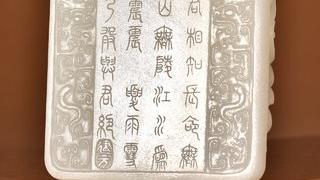 君相知長命無
山無陵江水為
震震夏雨雪
乃敢與君絕